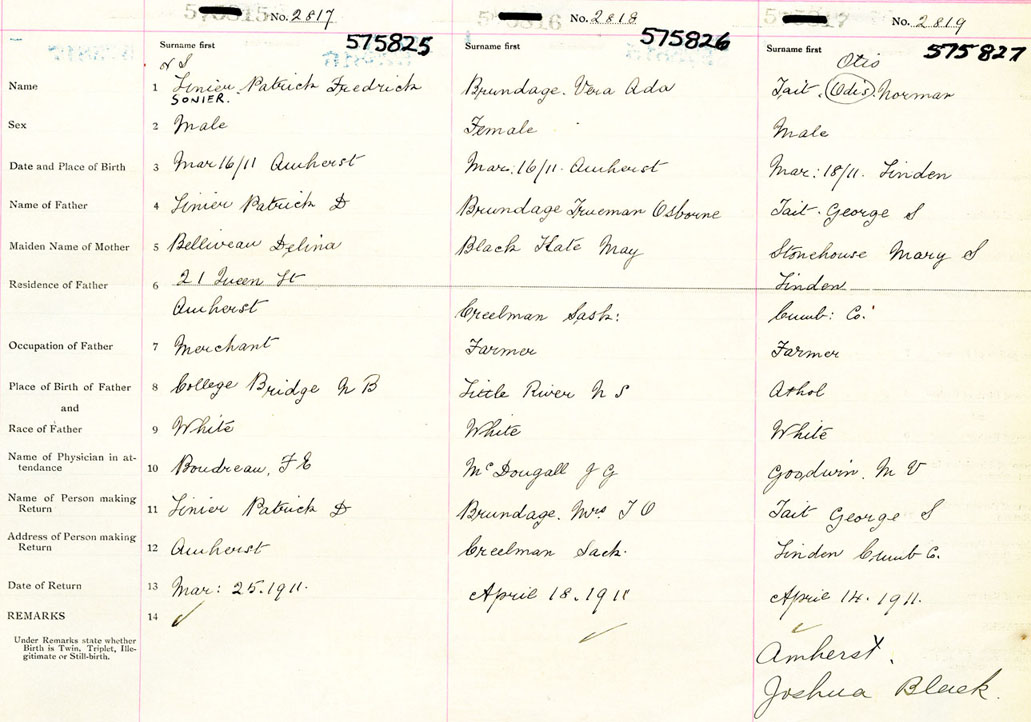 No. 2817
No. 2818
No. 2819
575825
575826
575827
Surname first
Surname first
Surname first
Otis
Name 1 Sinier Patrick Fredrick
SONIER.
Brundage. Vera Ada
Tait. Odis. Norman
Sex 2 Male
Female
Male
Date and Place of Birth 3 Mar 16/11 Amherst
Mar: 16/11. Amherst
Mar: 18/11. Linden
Name of Father 4 Sinier Patrick D
Brundage Trueman Osborne
Tait. George S
Maiden Name of Mother 5 Belliveau Delina
Black Kate May
Stonehouse Mary S
Residence of Father 6 21 Queen St
Amherst
Creelman Sask:
Linden
Cumb: Co.
Occupation of Father 7 Merchant
Farmer
Farmer
Place of Birth of Father 8 College Bridge N B
Little River N S
Athol
and
Race of Father 9 White
White
White
Name of Physician in at-
tendance 10 Boudreau, F E
McDougall J G
Goodwin. M V
Name of Person making
Return 11 Sinier Patrick D
Brundage. Mrs T O
Tait George S
Address of Person making
Return 12 Amherst
Creelman Sack.
Linden Cumb Co.
Date of Return 13 Mar: 25.1911.
April 18.1911
April 14.1911.
REMARKS 14
Under Remarks state whether
Birth is Twin, Triplet, Ille-
gitimate or Still-birth.
Amherst.
Joshua Black.